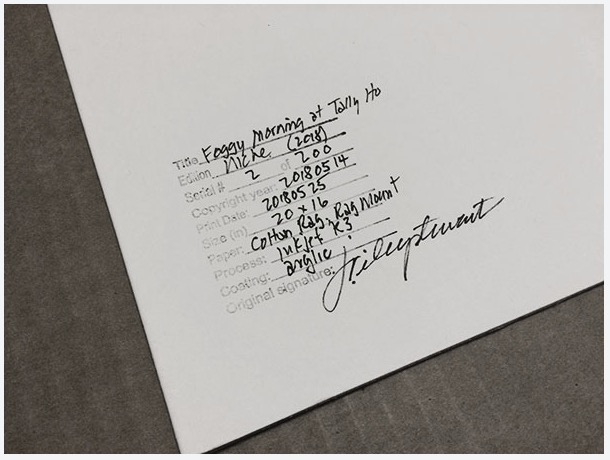 Title Foggy Morning at Tally Ho
Edition Niche (2018)
Serial # 2 of 200
Copyright year: 20180514
Print Date: 20180525
Size (in) 20 x 16
Paper: Cotton Rag, Rag Mount
Process: Inkjet K3
Coating:
Original signature: